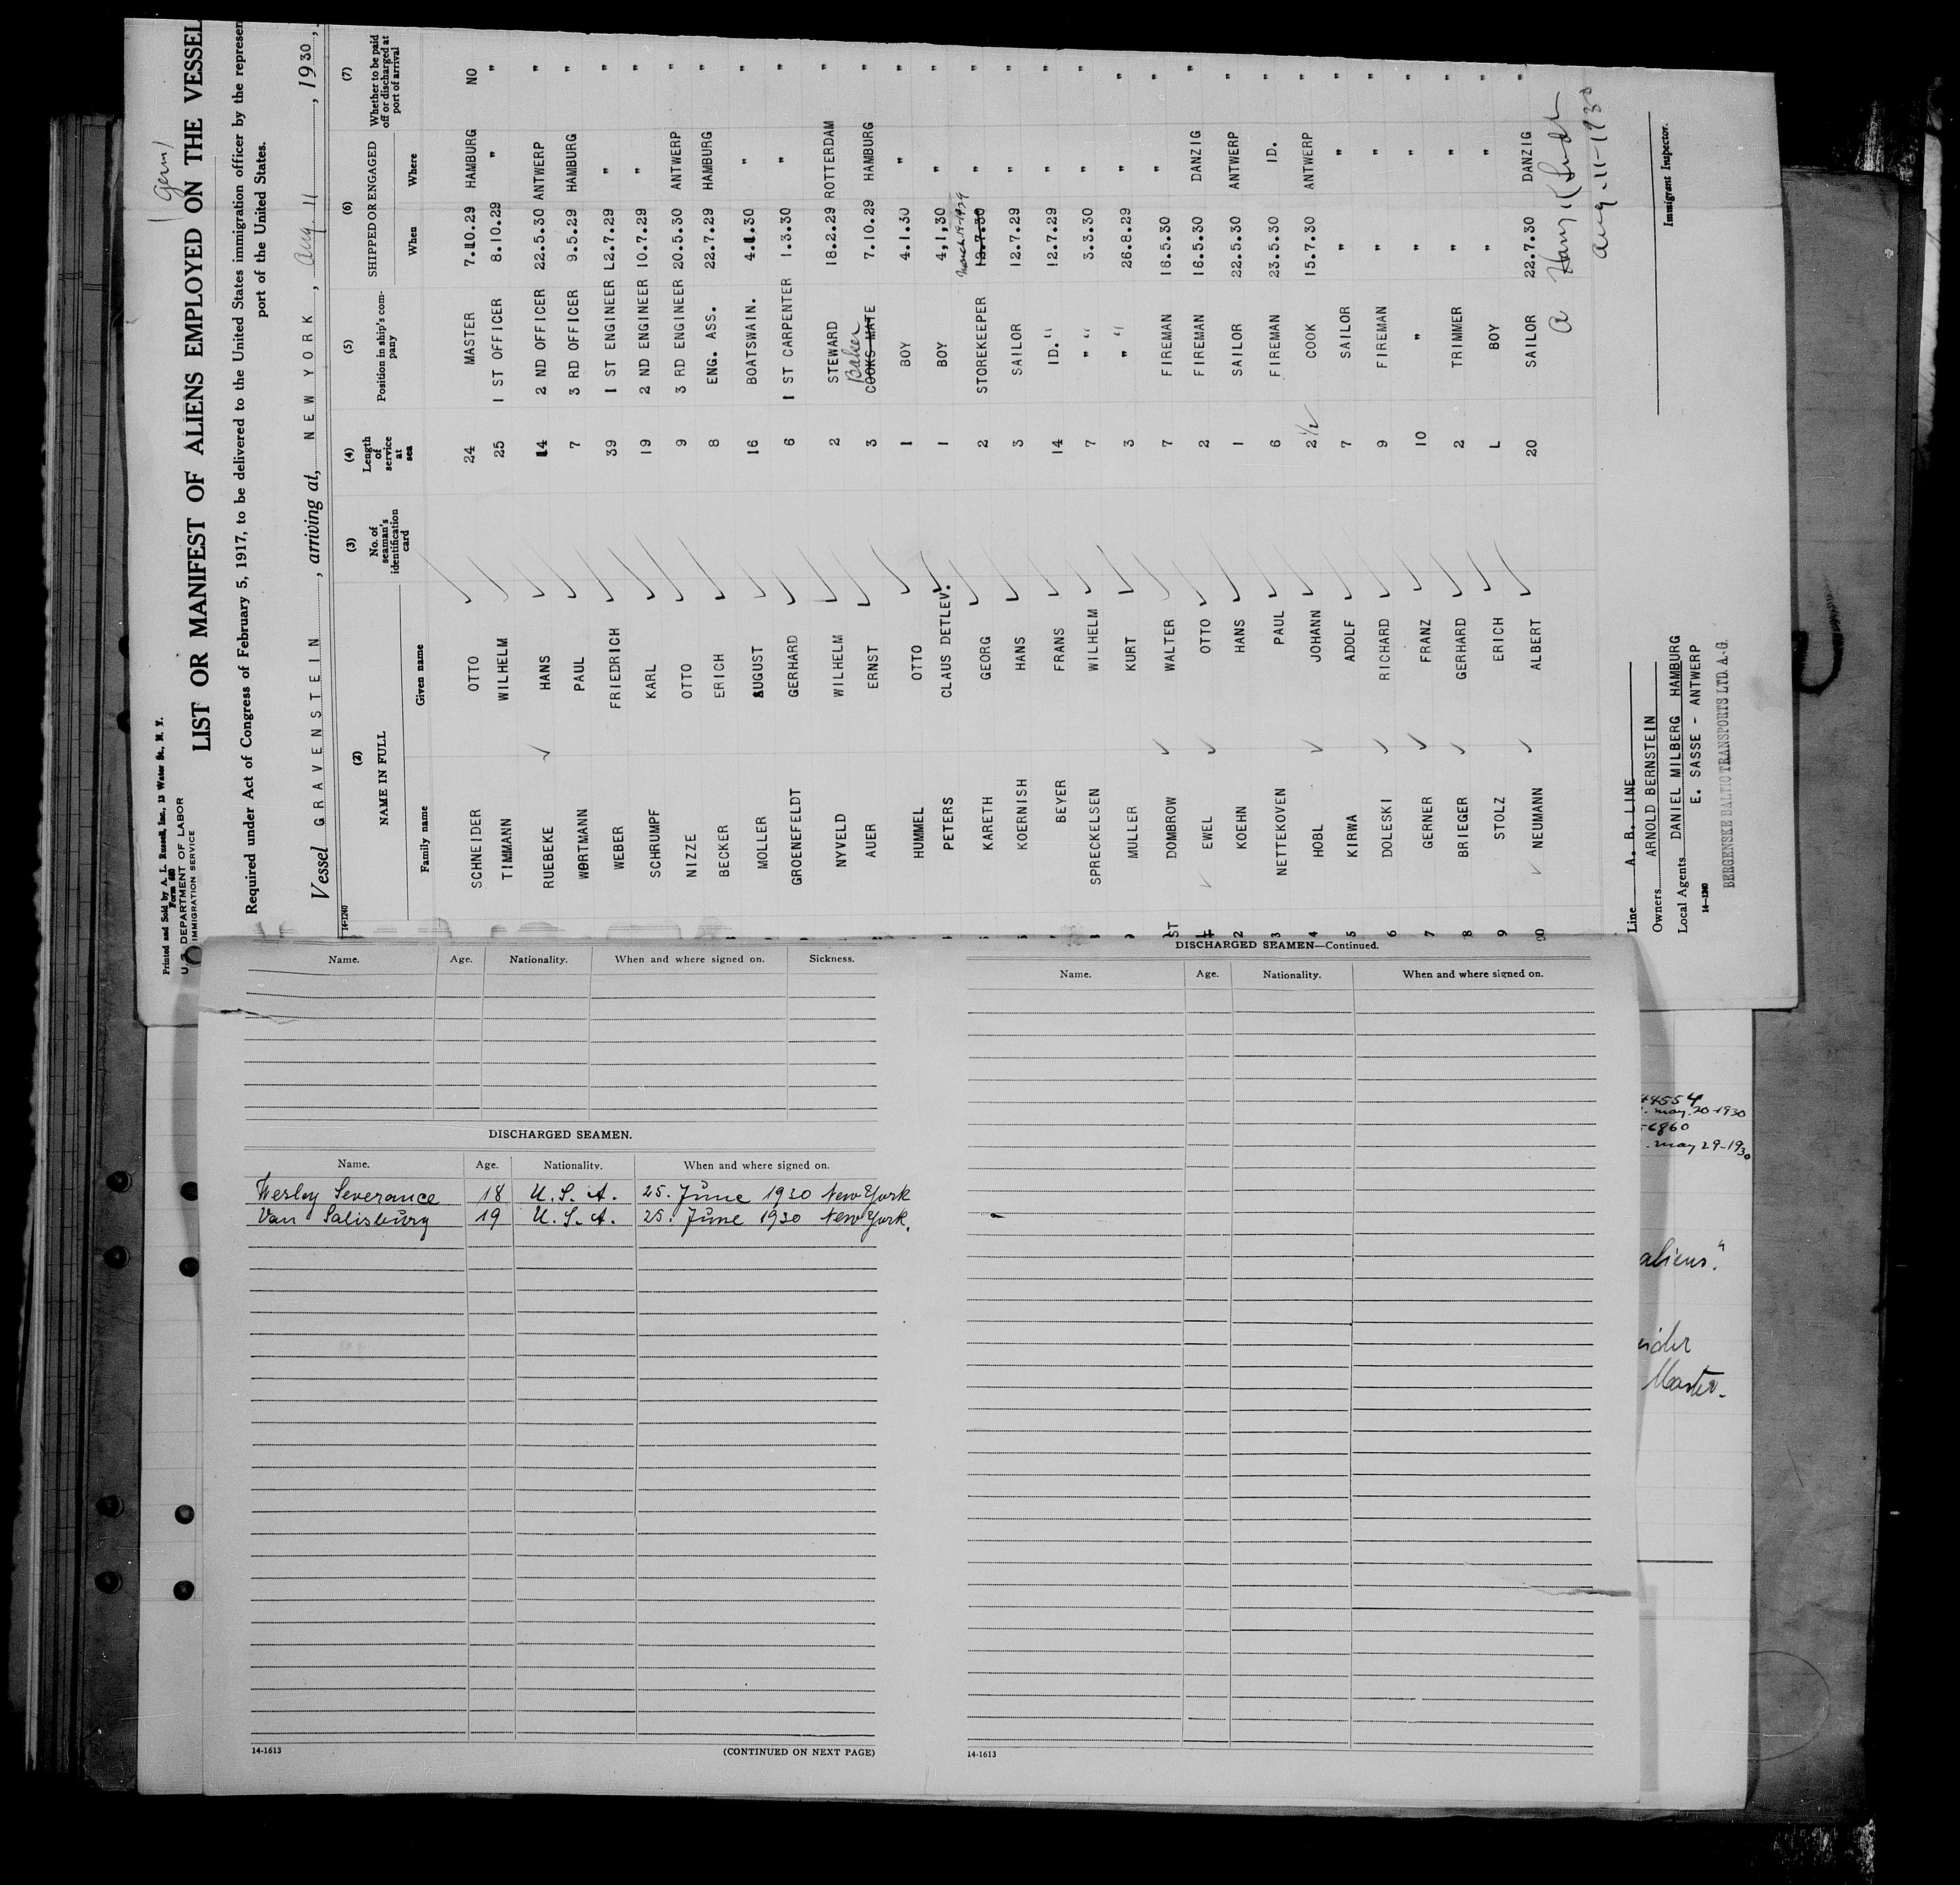 (Gem)
Printed and Sold by A. L. Russell, Inc., 13 Water St., N. Y.
Form 680
U. S. DEPARTMENT OF LABOR
IMMIGRATION SERVICE
LIST OR MANIFEST OF ALIENS EMPLOYED ON THE VESSEL
Required under Act of Congress of February 5, 1917, to be delivered to the United States immigration officer by the represen
port of the United States.
Vessel GRAVENSTEIN , arriving at, NEW YORK , Aug. 11 , 1930 ,
14-1240
(2) (3) (4) (5) (6) (7)
NAME IN FULL No. of seaman's identification card Length of service at sea Position in ship's company SHIPPED OR ENGAGED Whether to be paid off or discharged at port of arrival
Family name Given name When Where
SCHNEIDER OTTO 24 MASTER 7.10.29 HAMBURG NO
TIMMANN WILHELM 25 1 ST OFFICER 8.10.29 " "
RUEBEKE HANS 14 2 ND OFFICER 22.5.30 ANTWERP "
WORTMANN PAUL 7 3 RD OFFICER 9.5.29 HAMBURG "
WEBER FRIEDRICH 39 1 ST ENGINEER L2.7.29 " "
SCHRUMPF KARL 19 2 ND ENGINEER 10.7.29 " "
NIZZE OTTO 9 3 RD ENGINEER 20.5.30 ANTWERP "
BECKER ERICH 8 ENG. ASS. 22.7.29 HAMBURG "
MOLLER AUGUST 16 BOATSWAIN. 4.1.30 " "
GROENEFELDT GERHARD 6 1 ST CARPENTER 1.3.30 " "
NYVELD WILHELM 2 STEWARD 18.2.29 ROTTERDAM "
Baker
AUER ERNST 3 COOKS MATE 7.10.29 HAMBURG "
HUMMEL OTTO 1 BOY 4.1.30 " "
PETERS CLAUS DETLEV. 1 BOY 4,1,30 " "
March.19-1929
KARETH GEORG 2 STOREKEEPER 12.7.30 " "
KOERNISH HANS 3 SAILOR 12.7.29 " "
BEYER FRANS 14 ID. " 12.7.29 " "
SPRECKELSEN WILHELM 7 " " 3.3.30 " "
MULLER KURT 3 " " 26.8.29 " "
ST DOMBROW WALTER 7 FIREMAN 16.5.30 " "
EWEL OTTO 2 FIREMAN 16.5.30 DANZIG "
2 KOEHN HANS 1 SAILOR 22.5.30 ANTWERP "
3 NETTEKOVEN PAUL 6 FIREMAN 23.5.30 ID. "
4 HOBL JOHANN 2 1/2 COOK 15.7.30 ANTWERP "
5 KIRWA ADOLF 7 SAILOR " " "
6 DOLESKI RICHARD 9 FIREMAN " " "
7 GERNER FRANZ 10 " " " "
8 BRIEGER GERHARD 2 TRIMMER " " "
9 STOLZ ERICH L BOY " " "
NEUMANN ALBERT 20 SAILOR 22.7.30 DANZIG "
Aug-11-1930
Line A. B. LINE
Owners ARNOLD BERNSTEIN
Immigrant Inspector.
Local Agents DANIEL MILBERG HAMBURG
E. SASSE - ANTWERP
14-1240
BERGENSKE BALTIC TRANSPORTS LTD. A.-G.
Name. Age. Nationality. When and where signed on. Sickness.
DISCHARGED SEAMEN.
Name. Age. Nationality. When and where signed on.
Wesley Severance 18 U. S. A. 25. June 1930 New York
Van Salisbury 19 U. S. A. 25. June 1930 New York.
14-1613 (CONTINUED ON NEXT PAGE)
DISCHARGED SEAMEN—Continued.
Name. Age. Nationality. When and where signed on.
14-1613
44554
. may. 20-1930
6860
. may 29-1930
aliens."
eider
Master.